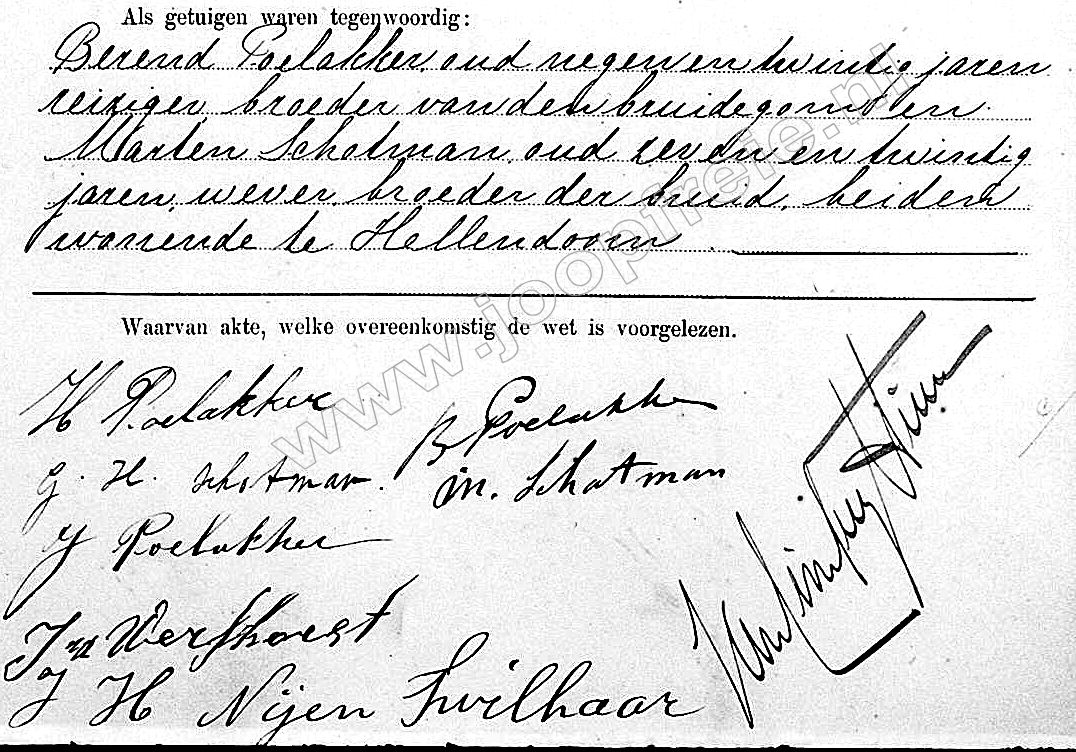 Als getuigen waren tegenwoordig:
Berend Poelakker, oud negen en twintig jaren
reiziger, broeder van den bruidegom en
Marten Schotman, oud zeven en twintig
jaren, wever, broeder der bruid, beiden
wonende te Hellendoorn
Waarvan akte, welke overeenkomstig de wet is voorgelezen.
H Poelakker
B Poelakker
G. H. Schotman.
M. Schotman
J Poelakker
Jna Werfhorst
J H Nijen Twilhaar
www.joopfrere.nl